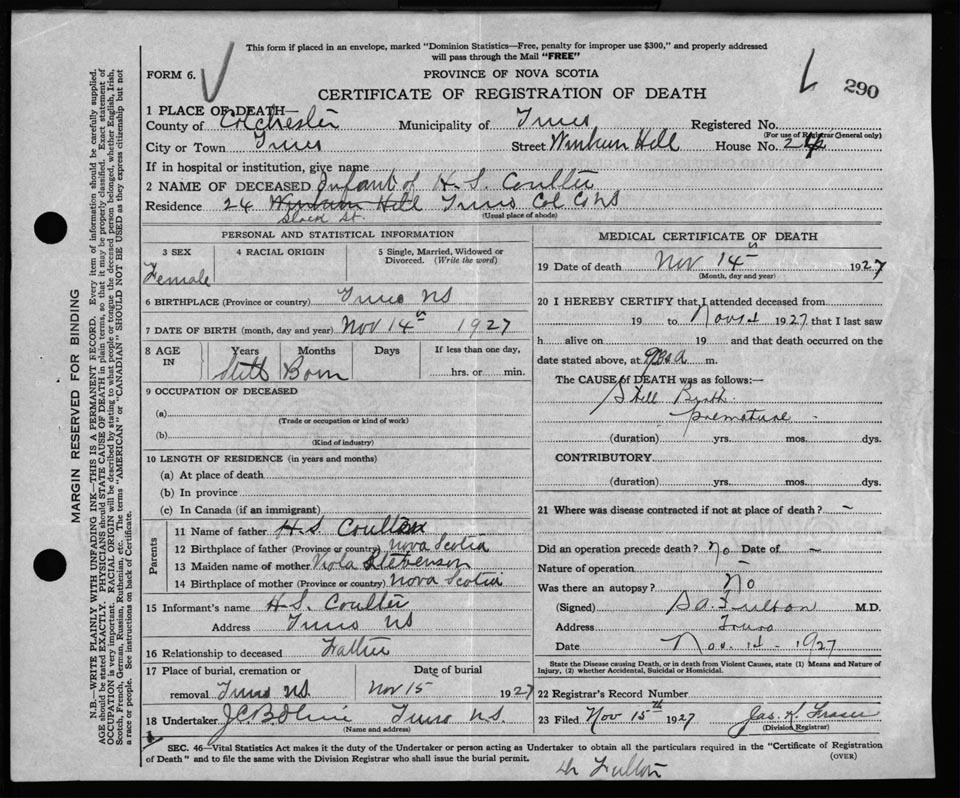 This form if placed in an envelope, marked "Dominion Statistics—Free, penalty for improper use $300," and properly addressed
will pass through the Mail "FREE"
FORM 6.
PROVINCE OF NOVA SCOTIA
290
CERTIFICATE OF REGISTRATION OF DEATH
1 PLACE OF DEATH—
County of Colchester Municipality of Truro Registered No.
(For use of Registrar General only)
City or Town Truro Street Wimburn Hill House No. 24
If in hospital or institution, give name
2 NAME OF DECEASED Infant of H. S. Coulter
Residence 24 Wimburn Hill Truro Col Co NS
(Usual place of abode)
PERSONAL AND STATISTICAL INFORMATION
3 SEX 4 RACIAL ORIGIN 5 Single, Married, Widowed or
Divorced. (Write the word)
Female
6 BIRTHPLACE (Province or country) Truro NS
7 DATE OF BIRTH (month, day and year) Nov 14th 1927
8 AGE IN Years Months Days If less than one day,
Still Born hrs. or min.
9 OCCUPATION OF DECEASED
(a)
(Trade or occupation or kind of work)
(b)
(Kind of industry)
10 LENGTH OF RESIDENCE (in years and months)
(a) At place of death
(b) In province
(c) In Canada (if an immigrant)
Parents
11 Name of father H. S. Coulter
12 Birthplace of father (Province or country) Nova Scotia
13 Maiden name of mother Viola Stevenson
14 Birthplace of mother (Province or country) Nova Scotia
15 Informant's name H. S. Coulter
Address Truro NS
16 Relationship to deceased Father
17 Place of burial, cremation or Date of burial
removal Truro NS. Nov 15 1927
18 Undertaker Truro N.S.
(Name and address)
MEDICAL CERTIFICATE OF DEATH
19 Date of death Nov 14th 1927
(Month, day and year)
20 I HEREBY CERTIFY that I attended deceased from
19 to Nov 14 1927, that I last saw
h alive on 19 and that death occurred on the
date stated above, at m.
The CAUSE of DEATH was as follows:—
Still Birth
premature -
(duration) yrs. mos. dys.
CONTRIBUTORY
(duration) yrs. mos. dys.
21 Where was disease contracted if not at place of death? –
Did an operation precede death? No Date of –
Nature of operation
Was there an autopsy? No
(Signed) Fulton M.D.
Address Truro
Date Nov. 14 - 1927
State the Disease causing Death, or in death from Violent Causes, state (1) Means and Nature of
Injury, (2) whether Accidental, Suicidal or Homicidal.
22 Registrar's Record Number
23 Filed Nov 15th 1927 Jas. K. Fraser
(Division Registrar)
SEC. 46—Vital Statistics Act makes it the duty of the Undertaker or person acting as Undertaker to obtain all the particulars required in the "Certificate of Registration
of Death" and to file the same with the Division Registrar who shall issue the burial permit.
(OVER)
Dr Fulton
MARGIN RESERVED FOR BINDING
N.B.—WRITE PLAINLY WITH UNFADING INK—THIS IS A PERMANENT RECORD. Every item of information should be carefully supplied.
AGE should be stated EXACTLY. PHYSICIANS should STATE CAUSE OF DEATH in plain terms, so that it may be properly classified. Exact statement of
OCCUPATION is very important. RACIAL ORIGIN will be described by stating to what people or tongue the deceased person belonged, whether English, Irish,
Scotch, French, German, Russian, Ruthenian, etc. The terms "AMERICAN" or "CANADIAN" SHOULD NOT BE USED as they express citizenship but not
a race or people. See instructions on back of Certificate.